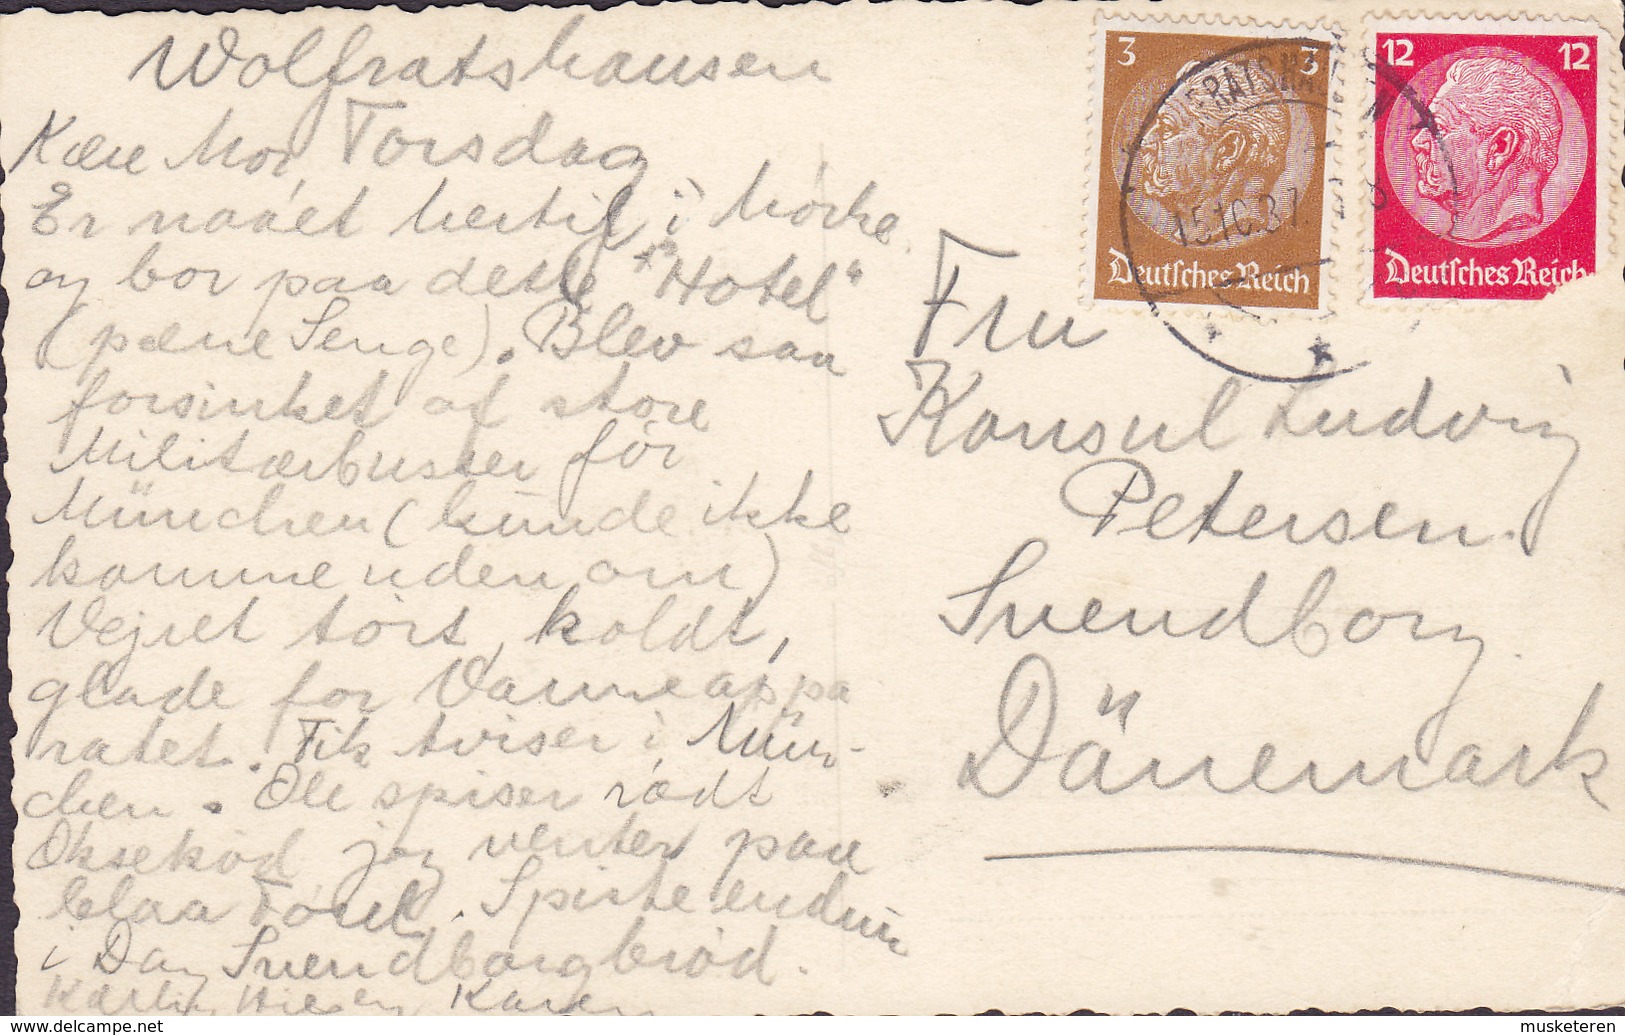 Wolfratshausen
Torsdag
Kære Mor,
Er naaet hertil i Mørke
og bor paa dette "Hotel"
(pæne Senge). Blev saa
forsinket af store
Militærbusser før
München (kunde ikke
komme uden om)
Vejret tørt, koldt,
glade for Varmeappa
ratet. Fik aviser i Mün-
chen. Ole spiser rødt
Oksekød, jeg venter paa
blaa Forel. Spiste endnu
i Dag Svendborgbrød.
Kærlig Hilsen Karen
3 3
Deutsches Reich
12 12
Deutsches Reich
15.10.37
Fru
Konsul Ludvig
Petersen.
Svendborg.
Dänemark
www.delcampe.net
musketeren